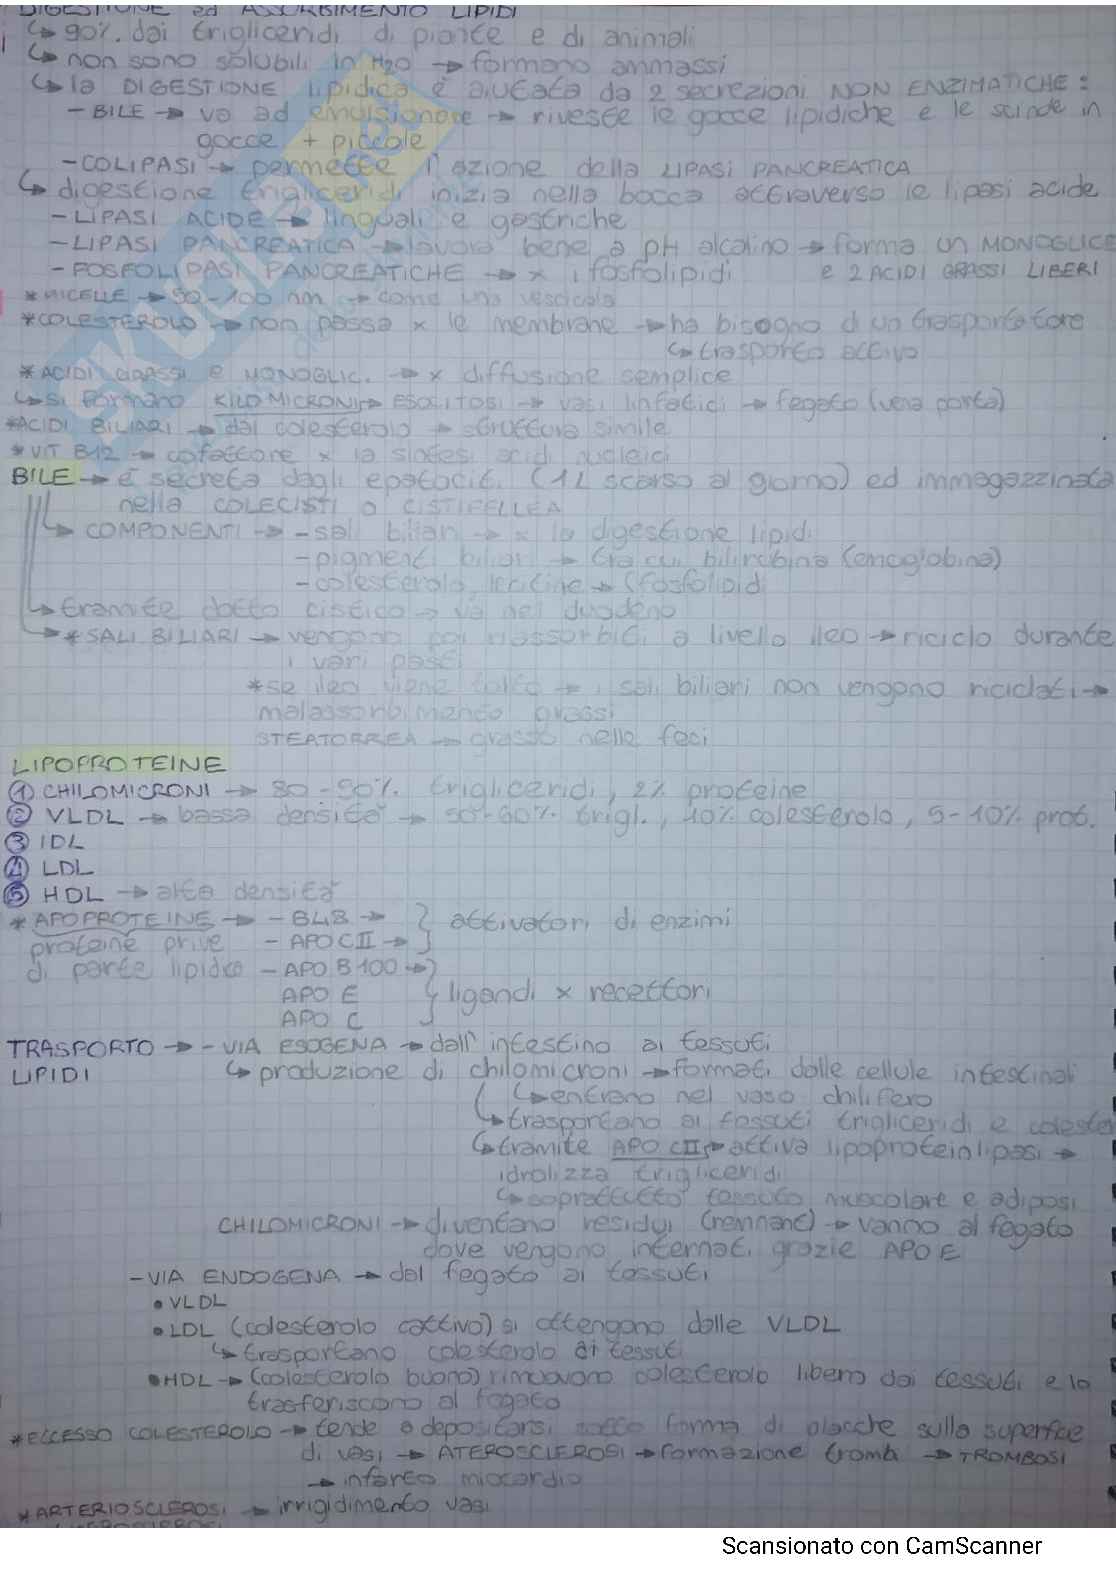 DIGESTIONE ed ASSORBIMENTO LIPIDI
↳ 90% dai trigliceridi di piante e di animali
↳ non sono solubili in H2O → formano ammassi
↳ la DIGESTIONE lipidica è aiutata da 2 secrezioni NON ENZIMATICHE:
- BILE → va ad emulsionare → riveste le gocce lipidiche e le scinde in
gocce + piccole
- COLIPASI → permette l'azione della LIPASI PANCREATICA
↳ digestione trigliceridi inizia nella bocca attraverso le lipasi acide
- LIPASI ACIDE → linguali e gastriche
- LIPASI PANCREATICA → lavora bene a pH alcalino → forma un MONOGLICE
- FOSFOLIPASI PANCREATICHE → x i fosfolipidi e 2 ACIDI GRASSI LIBERI
* MICELLE → 50-100 nm → come una vescicola
* COLESTEROLO → non passa x le membrane → ha bisogno di un trasportatore
↳ trasporto attivo
* ACIDI GRASSI e MONOGLIC. → x diffusione semplice
↳ si formano KILOMICRONI → ESOCITOSI → vasi linfatici → fegato (vena porta)
* ACIDI BILIARI → dal colesterolo → struttura simile
* VIT B12 → cofattore x la sintesi acidi nucleici
BILE → è secreta dagli epatociti (1 L scarso al giorno) ed immagazzinata
nella COLECISTI o CISTIFELLEA
↳ COMPONENTI → - sali biliari → x la digestione lipidi
- pigmenti biliari → tra cui bilirubina (emoglobina)
- colesterolo, lecitine → (fosfolipidi
↳ tramite dotto cistico → va nel duodeno
↳ * SALI BILIARI → vengono poi riassorbiti a livello ileo → riciclo durante
i vari pasti
* se ileo viene tolto → i sali biliari non vengono riciclati →
malassorbimento grassi
STEATORREA → grasso nelle feci
LIPOPROTEINE
① CHILOMICRONI → 80-90% trigliceridi, 2% proteine
② VLDL → bassa densità → 50-60% trigl., 40% colesterolo, 5-10% prot.
③ IDL
④ LDL
⑤ HDL → alta densità
* APOPROTEINE → - B48 → } attivatori di enzimi
proteine prive - APO CII →
di parte lipidica - APO B100 →
APO E } ligandi x recettori
APO C
TRASPORTO → - VIA ESOGENA → dall'intestino ai tessuti
LIPIDI ↳ produzione di chilomicroni → formati dalle cellule intestinali
↳ entrano nel vaso chilifero
↳ trasportano ai tessuti trigliceridi e coleste
↳ tramite APO CII → attiva lipoproteinlipasi →
idrolizza trigliceridi
↳ soprattutto tessuto muscolare e adiposi
CHILOMICRONI → diventano residui (remnant) → vanno al fegato
dove vengono internati grazie APO E
- VIA ENDOGENA → dal fegato ai tessuti
• VLDL
• LDL (colesterolo cattivo) si ottengono dalle VLDL
↳ trasportano colesterolo ai tessuti
• HDL → (colesterolo buono) rimuovono colesterolo libero dai tessuti e lo
trasferiscono al fegato
* ECCESSO COLESTEROLO → tende a depositarsi sotto forma di placche sulla superficie
di vasi → ATEROSCLEROSI → formazione trombi → TROMBOSI
→ infarto miocardio
* ARTERIOSCLEROSI → irrigidimento vasi
Scansionato con CamScanner